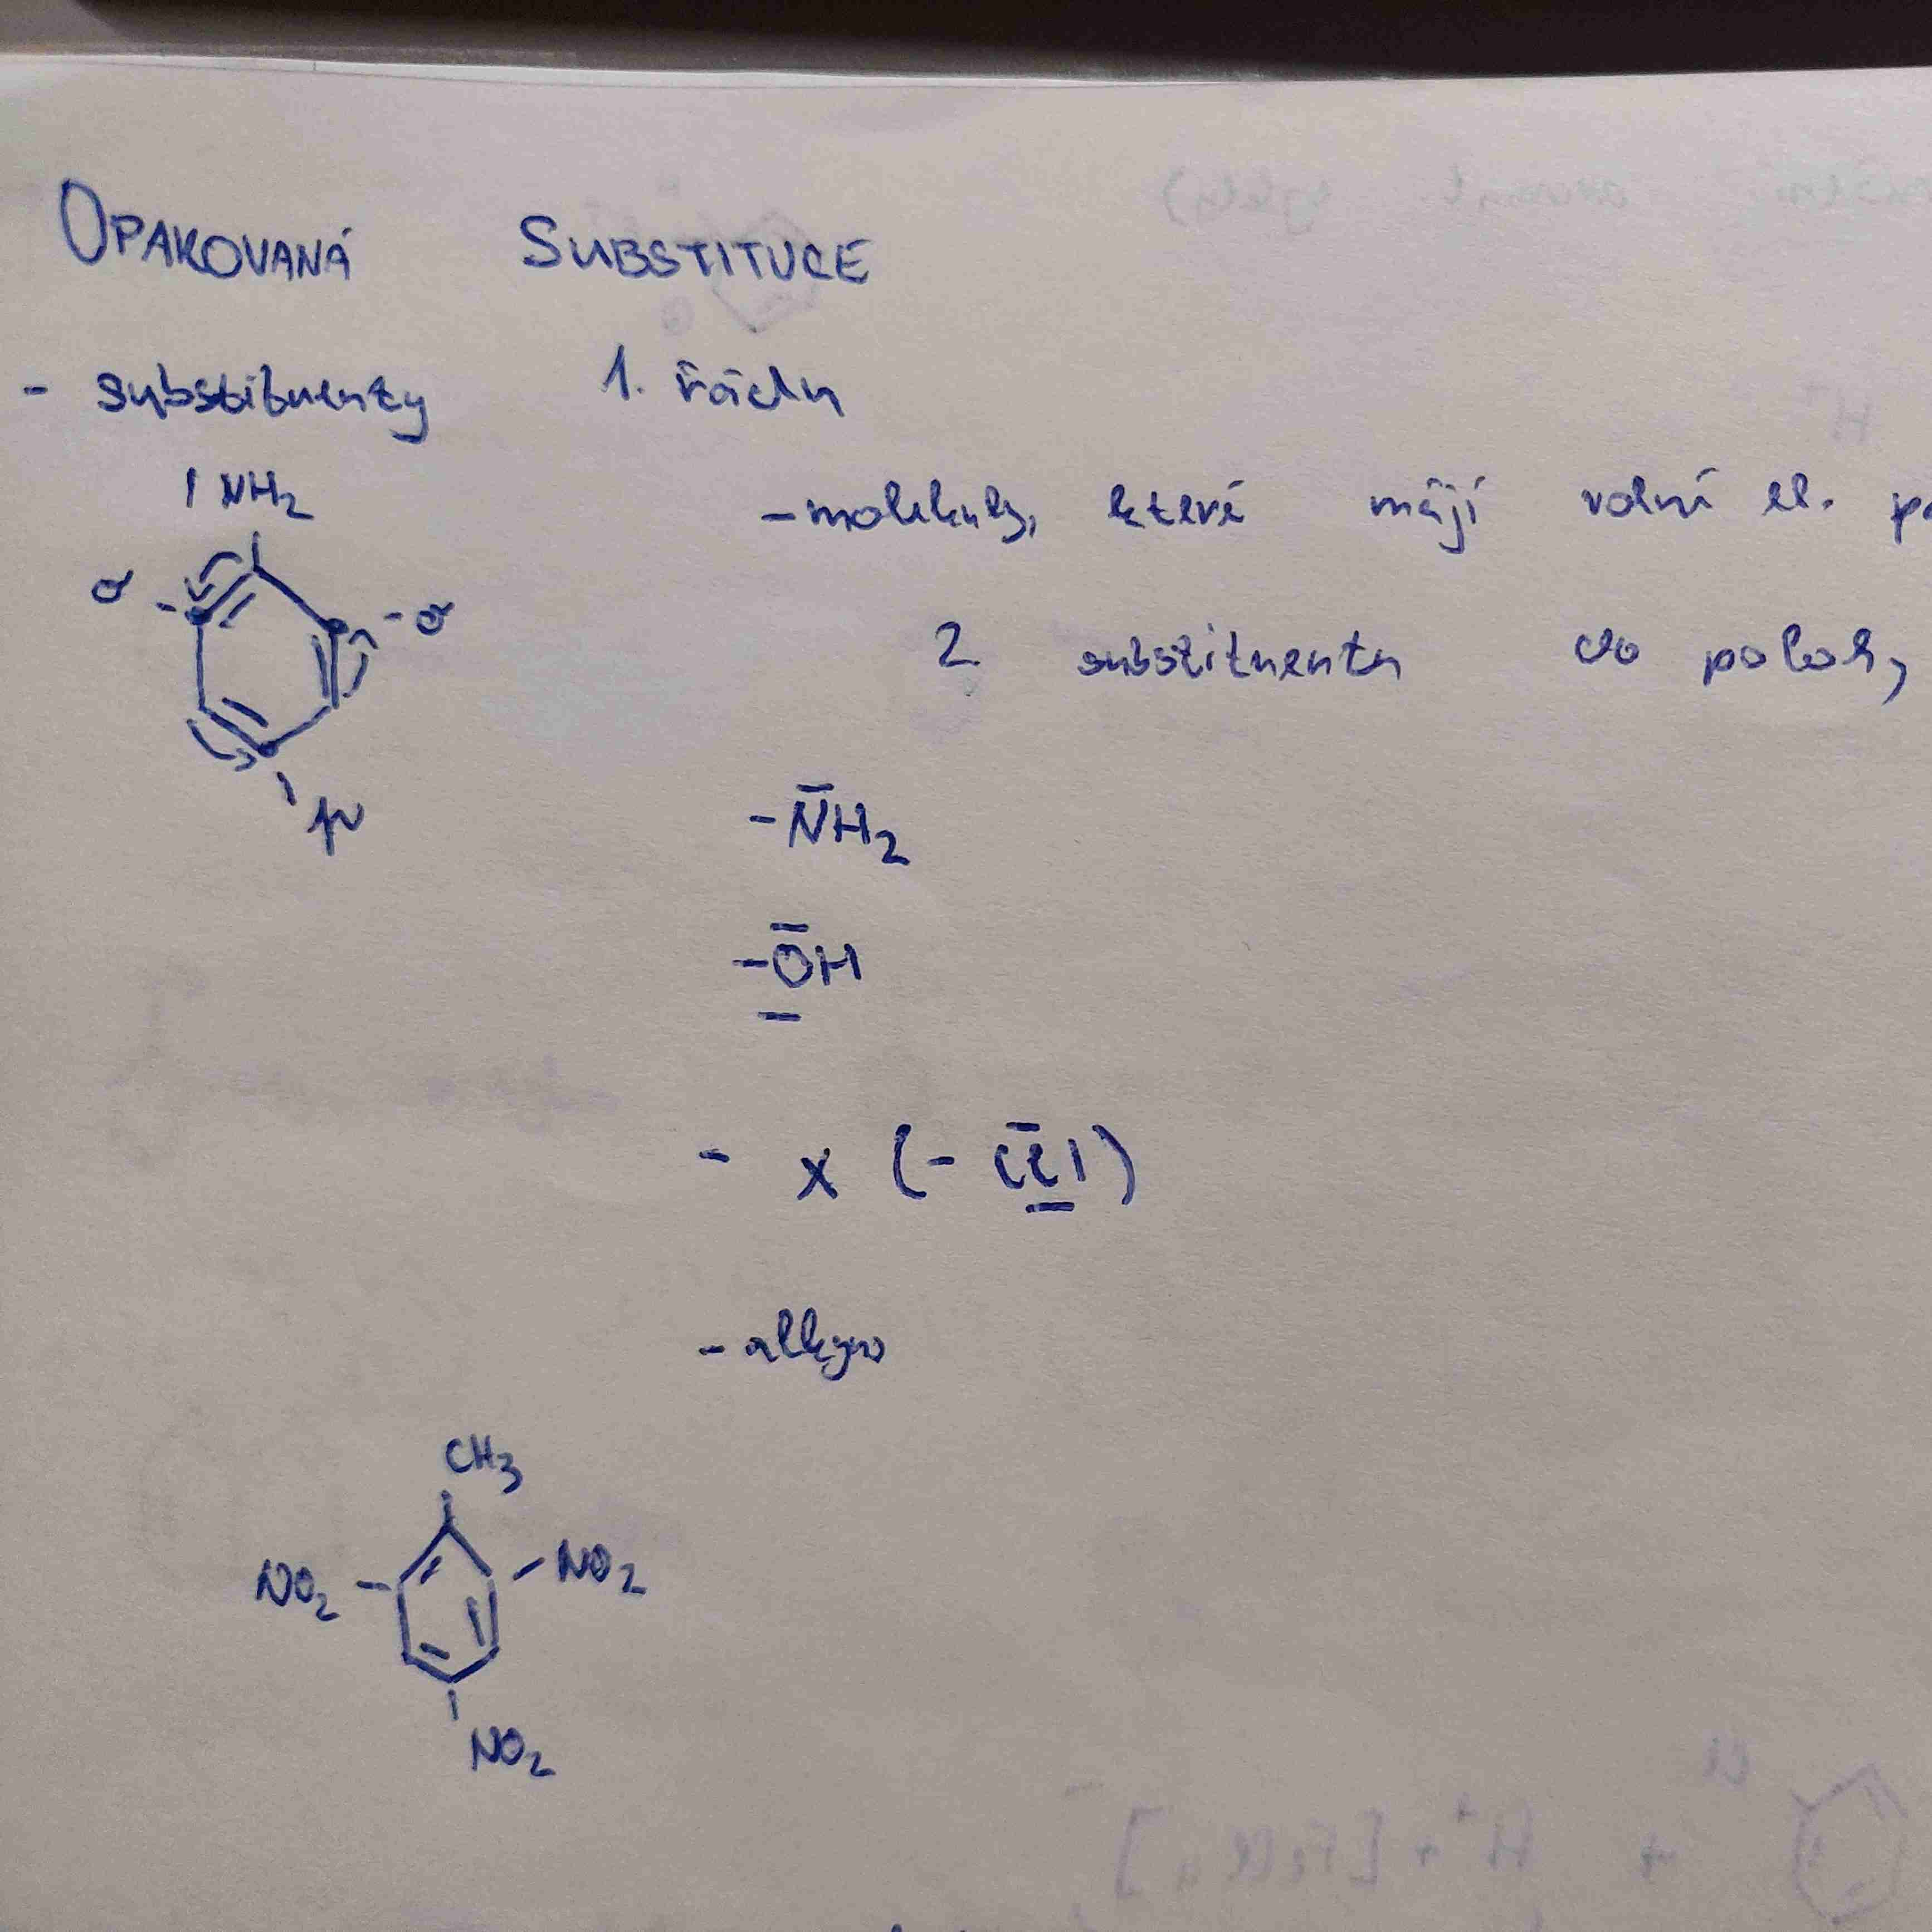 OPAKOVANÁ SUBSTITUCE
- substituenty 1. řádu
| NH2
- molekuly, které mají volní el.
σ - - σ
2 substituentu do polohy
- N̄H2
- ŌH
- x (- Cl|)
- alkyn
CH3
NO2 - - NO2
NO2